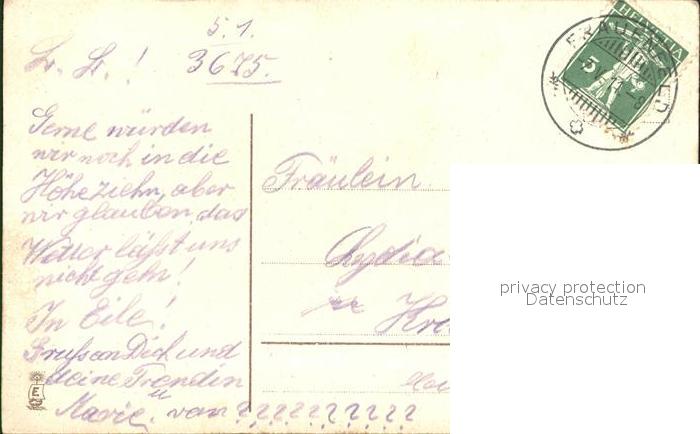 5. 1.
L. L.! 3675.
HELVETIA
FRAUENFELD
5
Gerne würden
wir noch in die
Höhe ziehn, aber
wir glauben das
Wetter läßt uns
nicht gehn!
In Eile!
Gruß an Dich und
deine Frendin
Marie. von ??????????
E
Fräulein
Lydia
privacy protection
Datenschutz